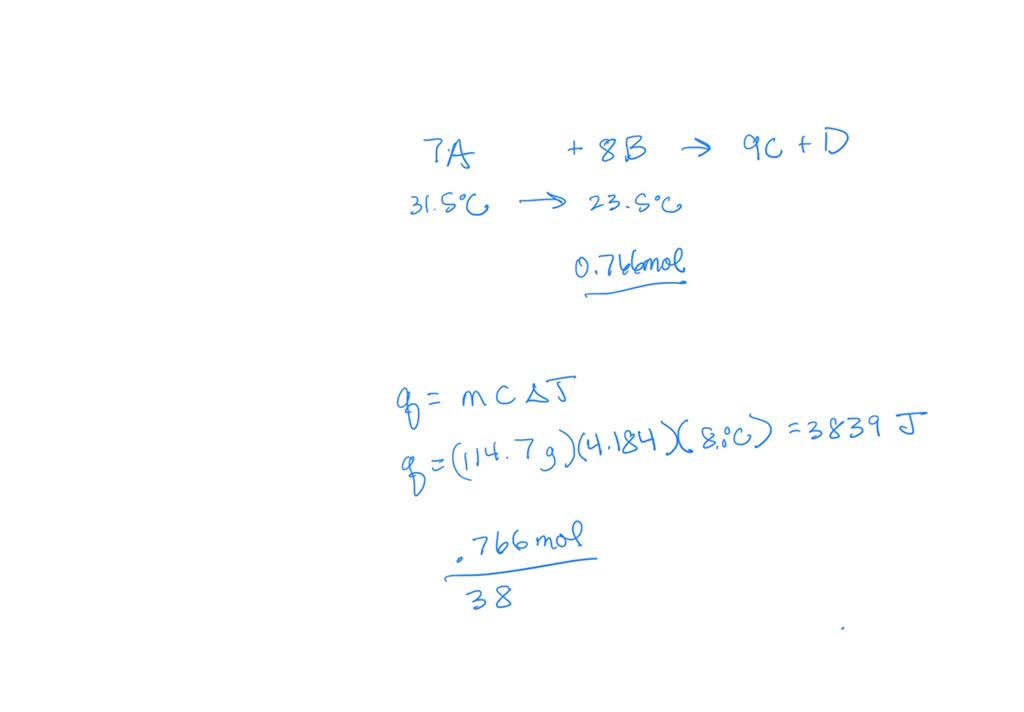 7A + 8B → 9C + D
31.5°C → 23.5°C
0.766mol
q = mCΔT
q = (114.7g)(4.184)(8.0°C) = 3839 J
.766mol
38